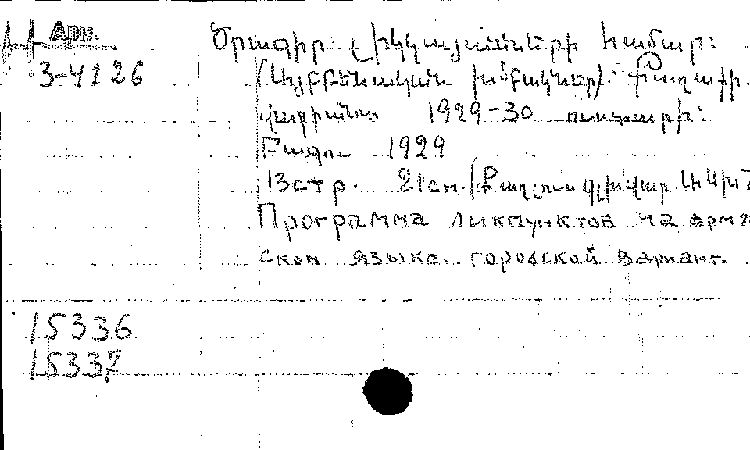 Арм.
3-4126
Ծրագիր լիկկայանների համար:
(Այբբենական խմբակներ): Քաղաքի
վարիանտ 1929-30 ուստարի:
Բագու 1929
13 стр. 21 см.
Программа ликпунктов на армян
ском языке. городской вариант.
15336
15337